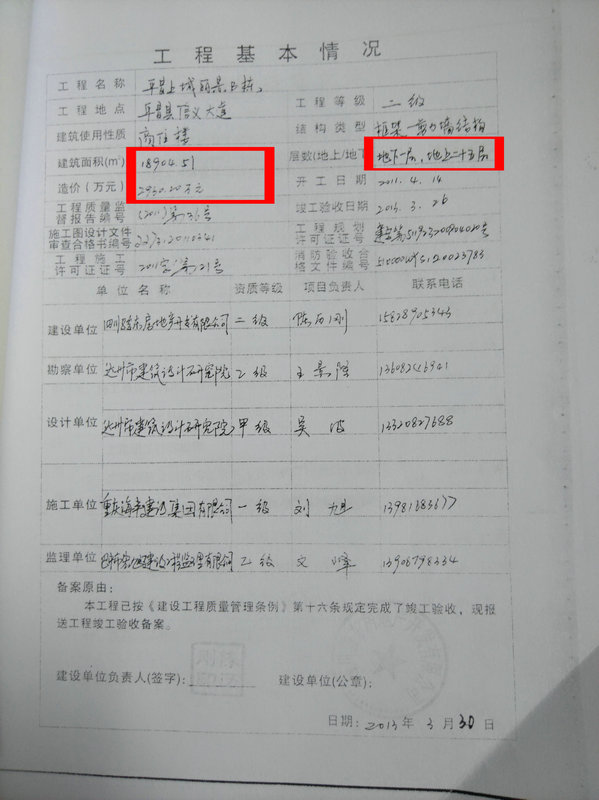 工程基本情况
工程名称 平昌上城丽景B栋
工程地点 平昌县信义大道 工程等级 二级
建筑使用性质 商住楼 结构类型 框架—剪力墙结构
建筑面积(m²) 18904.51 层数(地上/地下 地下一层,地上二十五层
造价(万元) 2930.20万元 开工日期 2011.4.14
工程质量监督报告编号 竣工验收日期 2013.3.26
施工图设计文件审查合格书编号 工程规划许可证证号
工程施工许可证证号 消防验收合格文件编号
单位名称 资质等级 项目负责人 联系电话
建设单位 房地产开发有限公司 二级 15828905343
勘察单位 达州市建筑设计研究院 乙级 13608246941
设计单位 达州市建筑设计研究院 甲级 吴波 13320827688
施工单位 重庆海 建设集团有限公司 一级 刘旭
监理单位 建设工程监理有限公司 乙级 文峰 13908798334
备案原由:
本工程已按《建设工程质量管理条例》第十六条规定完成了竣工验收,现报
送工程竣工验收备案。
建设单位负责人(签字): 建设单位(公章):
日期:2013年3月30日